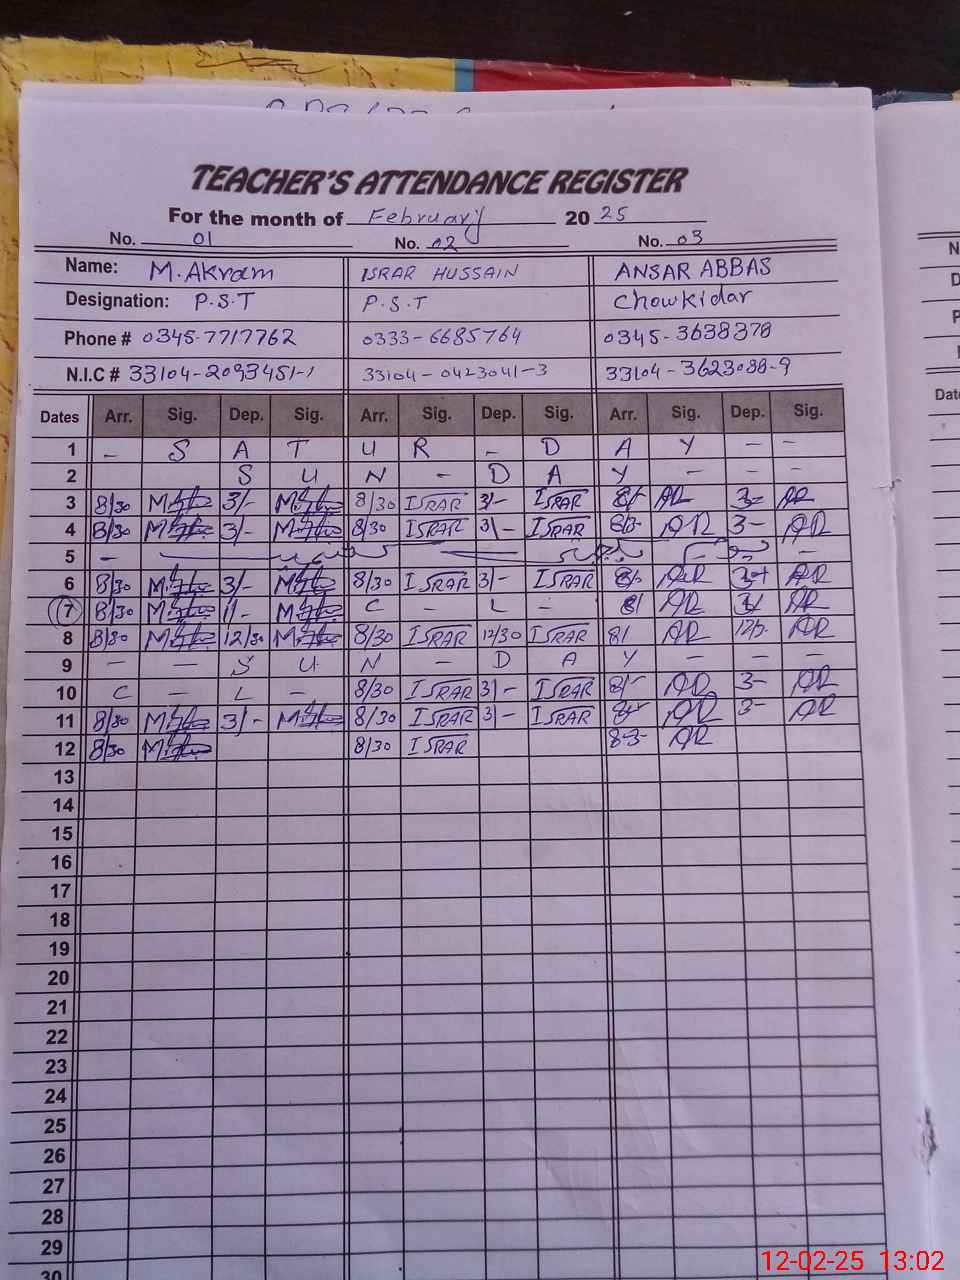 TEACHER'S ATTENDANCE REGISTER
For the month of February 2025
No. 01 No. 02 No. 03
Name: M. Akram ISRAR HUSSAIN ANSAR ABBAS
Designation: P.S.T P.S.T Chowkidar
Phone # 0345-7717762 0333-6685764 0345-3638378
N.I.C # 33104-2093451-1 33104-0423041-3 33104-3623088-9
Dates Arr. Sig. Dep. Sig. Arr. Sig. Dep. Sig. Arr. Sig. Dep. Sig.
1 - S A T U R - D A Y - -
2 S U N - D A Y - - -
3 8/30 3/- 8/30 ISRAR 3/- ISRAR 8/- AR 3- AR
4 8/30 3/- 8/30 ISRAR 3/- ISRAR AR 3- AR
5
6 8/30 3/- 8/30 ISRAR 3/- ISRAR AR AR
7 8/30 1/- C - L - 8/ AR 3/ AR
8 8/30 12/30 8/30 ISRAR 12/30 ISRAR 8/ AR AR
9 - - S U N - D A Y - - -
10 C - L - 8/30 ISRAR 3/- ISRAR 8/- AR 3- AR
11 8/30 3/- 8/30 ISRAR 3/- ISRAR AR 3- AR
12 8/30 8/30 ISRAR AR
13
14
15
16
17
18
19
20
21
22
23
24
25
26
27
28
29
30
12-02-25 13:02